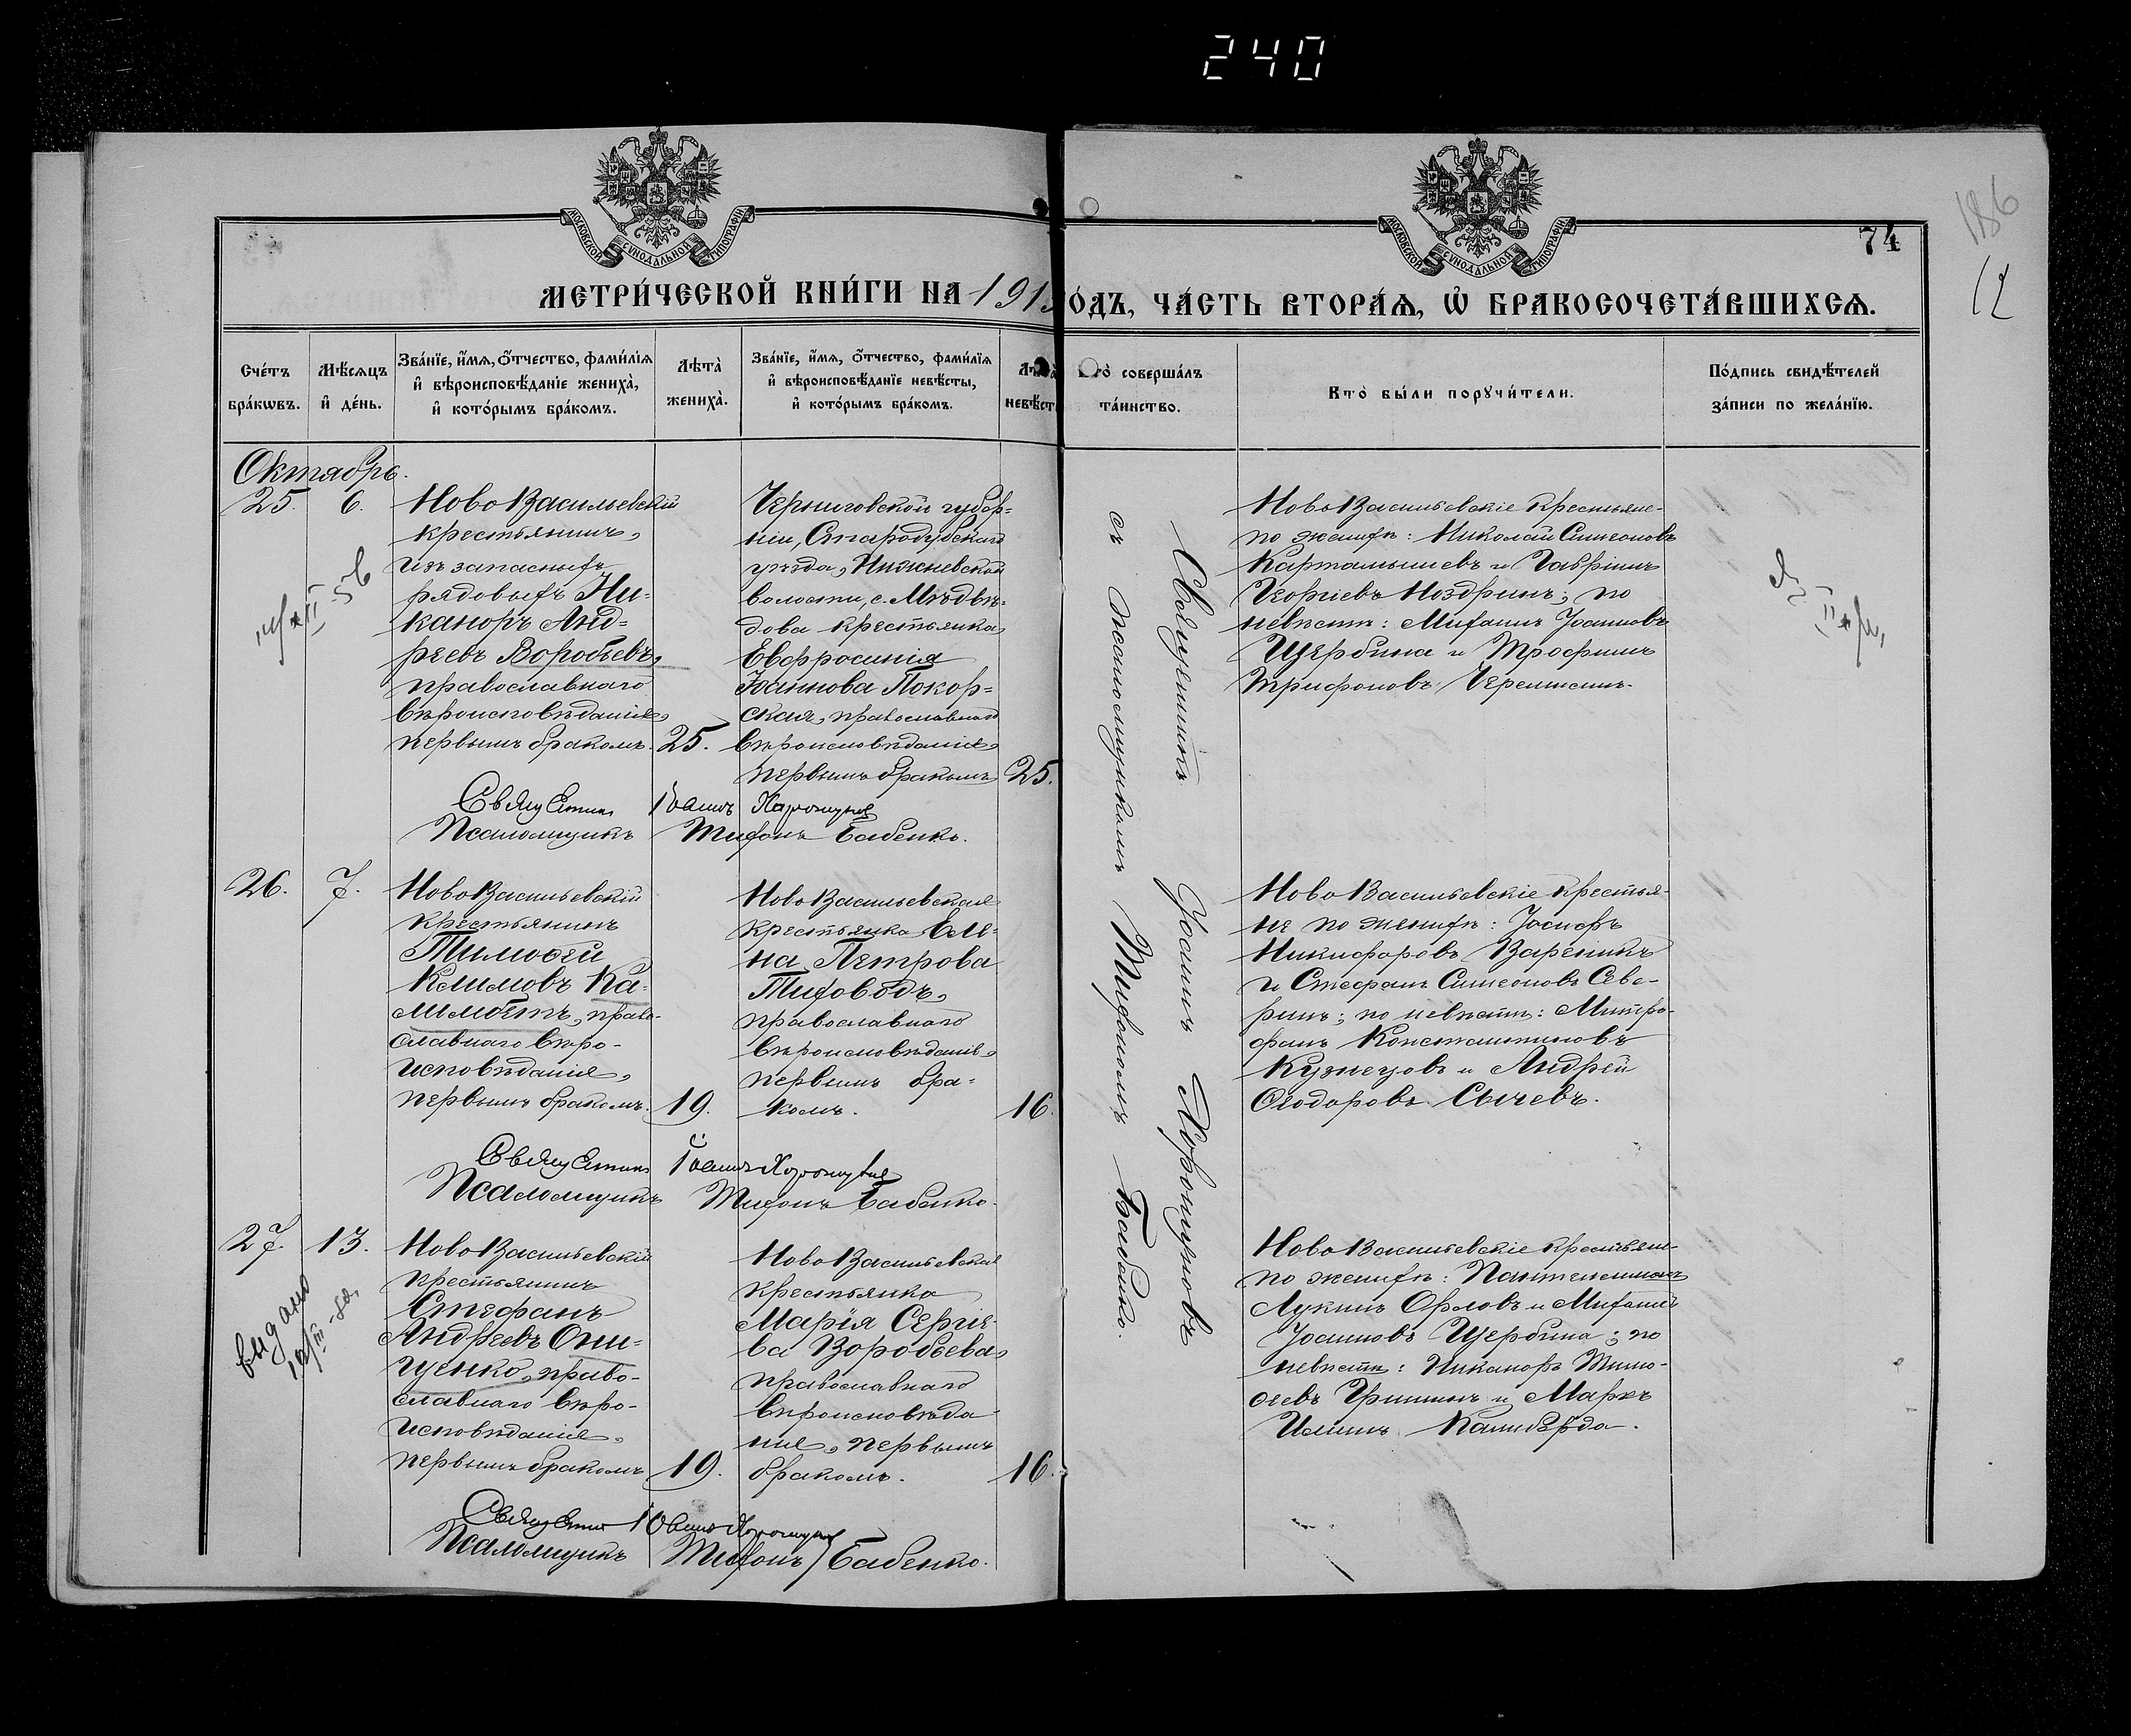 240
МОСКОВСКОЙ СѴНОДАЛЬНОЙ ТИПОГРАФІИ
МОСКОВСКОЙ СѴНОДАЛЬНОЙ ТИПОГРАФІИ
74
186
12
МЕТРИ́ЧЕСКОЙ КНИ́ГИ НА 191
О́ДЪ, ЧА́СТЬ ВТОРА́Ѧ, Ѡ҆ БРАКОСОЧЕТА́ВШИХСѦ.
Сче́тъ бра́кѡвъ.
Мѣ́сѧцъ и҆ де́нь.
Зва́нїе, и҆́мѧ, ѻ҆́тчество, фами́лїѧ
и҆ вѣроисповѣ́данїе жениха̀,
и҆ кото́рымъ бра́комъ.
Лѣта̀ жениха̀.
Зва́нїе, и҆́мѧ, ѻ҆́тчество, фами́лїѧ
и҆ вѣроисповѣ́данїе невѣ́сты,
и҆ кото́рымъ бра́комъ.
Лѣта̀ невѣ́ст
то̀ соверша́лъ
та́инство.
Кто̀ бы́ли порꙋчи́тели.
По́дпись свидѣ́телей
за́писи по жела́нїю.
Октябрь.
25. 6.
Ново Васильевскій
крестьянинъ,
изъ запасныхъ
рядовыхъ Ни-
каноръ Анд-
реевъ Воробьевъ,
православнаго
вѣроисповѣданія,
первымъ бракомъ. 25.
Черниговской губер-
ніи, Стародубскаго
уѣзда,
волости, с. Мѣдвѣ-
дова крестьянка
Евфросинія
Іоаннова Покор-
ская, православнаго
вѣроисповѣданія,
первымъ бракомъ 25.
Ново Васильевскіе крестьяне
по женихѣ: Николай Симеоновъ
Картамышевъ и Гавріилъ
Георгіевъ Ноздринъ; по
невѣстѣ: Михаилъ Іоанновъ
Щербина и Трофимъ
Трифоновъ Черемисинъ.
Священникъ Іоаннъ Хорошуновъ
Псаломщикъ Тихонъ Бабенко.
26. 7.
Ново Васильевскій
крестьянинъ
Тимоѳей
Климовъ Ка-
, право-
славнаго вѣро-
исповѣданія,
первымъ бракомъ. 19.
Ново Васильевская
крестьянка Еле-
на Петрова
Тиховодъ,
православнаго
вѣроисповѣданія,
первымъ бра-
комъ. 16.
Ново Васильевскіе крестья-
не по женихѣ: Іосифъ
Никифоровъ Вареникъ
и Стефанъ Симеоновъ Севе-
ринъ; по невѣстѣ: Митро-
фанъ Константиновъ
Кузнецовъ и Андрей
Ѳеодоровъ Сычевъ.
Священникъ Іоаннъ Хорошуновъ
Псаломщикъ Тихонъ Бабенко.
27. 13.
Ново Васильевскій
крестьянинъ
Стефанъ
Андреевъ Они-
щенко, право-
славнаго вѣро-
исповѣданія,
первымъ бракомъ 19.
Ново Васильевская
крестьянка
Марія Сергіе-
ва Воробьева,
православнаго
вѣроисповѣда-
нія, первымъ
бракомъ. 16.
Ново Васильевскіе крестьяне
по женихѣ: Пантелеимонъ
Лукинъ Орловъ и Михаилъ
Іоанновъ Щербина; по
невѣстѣ: Никаноръ Тимо-
ѳеевъ Гришинъ и Маркъ
Ильинъ Калиберда.
выдано
Священникъ Іоаннъ Хорошуновъ
Псаломщикъ Тихонъ Бабенко.
Священникъ Іоаннъ Хорошуновъ
съ псаломщикомъ Тихономъ Бабенко.